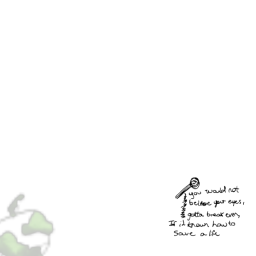 you would not
believe your eyes,
gotta break even,
If i'd known how to
Save a life